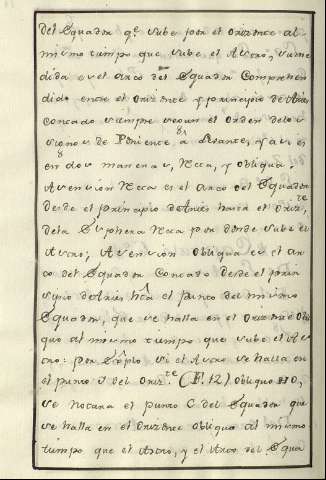 del Equador qe. sube por el Orizonte al
mismo tiempo que sube el Astro, y sume
dida es el arco del Equador Comprehen
dido entre el Orizonte y principio de Aries
Contado siempre segun el orden de los si
gnos de Poniente a Levante, y assi es
en dos maneras, Recta, y obliqua.
Ascension Recta es el Arco del Equador
desde el principio de Aries hasta el Orizte.
de la Sphera Recta por donde sube el
Astro; Ascension obliqua es el ar
co del Equador Contado desde el prin
sipio de Aries hta. el punto del mismo
Equador, que se halla en el Orizonte obli
quo al mismo tiempo que sube el As
tro: por Explo. si el Astro se halla en
el punto S del Orizte. (F. 12) obliquo HO,
se notara el punto C del Equador que
se halla en el Orizonte obliquo al mismo
tiempo que el Astro, y el Arco del Equa